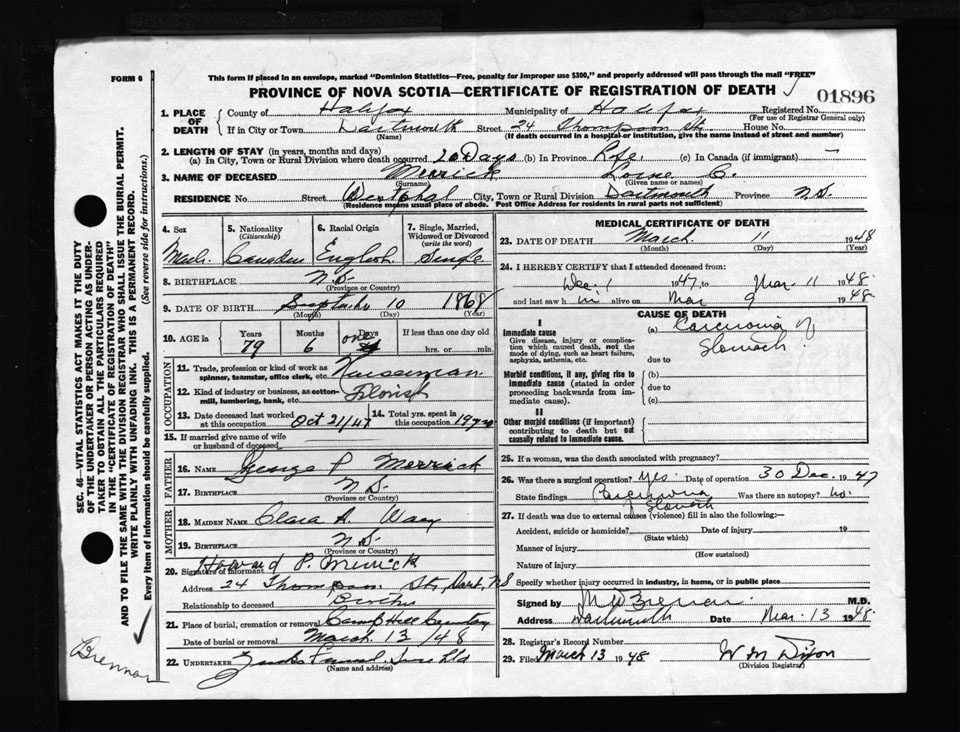 FORM 6
This form if placed in an envelope, marked "Dominion Statistics—Free, penalty for improper use $300," and properly addressed will pass through the mail "FREE"
PROVINCE OF NOVA SCOTIA—CERTIFICATE OF REGISTRATION OF DEATH
01896
1. PLACE OF DEATH
County of Halifax Municipality of Halifax Registered No.
(For use of Registrar General only)
If in City or Town Dartmouth Street 24 Thompson St. House No.
(Name) (If death occurred in a hospital or institution, give the name instead of street and number)
2. LENGTH OF STAY (in years, months and days)
(a) In City, Town or Rural Division where death occurred 20 Days (b) In Province Life (c) In Canada (if immigrant) —
3. NAME OF DECEASED Merrick Lorne C.
(Surname) (Given name or names)
RESIDENCE No. Street Westphal City, Town or Rural Division Dartmouth Province N.S.
(Residence means usual place of abode. Post Office Address for residents in rural parts not sufficient)
4. Sex
5. Nationality (Citizenship)
6. Racial Origin
7. Single, Married, Widowed or Divorced (write the word)
Male Canadian English Single
8. BIRTHPLACE N.S.
(Province or Country)
9. DATE OF BIRTH September 10 1868
(Month) (Day) (Year)
10. AGE in
Years Months Days If less than one day old
79 6 one hrs. or min.
OCCUPATION
11. Trade, profession or kind of work as spinner, teamster, office clerk, etc. Nurseryman
12. Kind of industry or business, as cotton-mill, lumbering, bank, etc. Florist
13. Date deceased last worked at this occupation Oct 21/47
14. Total yrs. spent in this occupation 19 yrs
15. If married give name of wife or husband of deceased
FATHER
16. NAME George P Merrick
17. BIRTHPLACE N.S.
(Province or Country)
MOTHER
18. MAIDEN NAME Clara A.
19. BIRTHPLACE N.S.
(Province or Country)
20. Signature of informant Howard P. Merrick
Address 24 Thompson St, Dart, NS
Relationship to deceased Brother
21. Place of burial, cremation or removal Camp Hill Cemetery
Date of burial or removal March 13/48
22. UNDERTAKER Funeral Ltd
(Name and address)
MEDICAL CERTIFICATE OF DEATH
23. DATE OF DEATH March 11 1948
(Month) (Day) (Year)
24. I HEREBY CERTIFY that I attended deceased from:
Dec. 1 1947 to Mar. 11 1948
and last saw him alive on Mar 9 1948
CAUSE OF DEATH
I
Immediate cause
Give disease, injury or complication which caused death, not the mode of dying, such as heart failure, asphyxia, asthenia, etc.
(a) Carcinoma of
Stomach.
due to
Morbid conditions, if any, giving rise to immediate cause (stated in order proceeding backwards from immediate cause).
(b)
due to
(c)
II
Other morbid conditions (if important) contributing to death but not causally related to immediate cause.
25. If a woman, was the death associated with pregnancy?
26. Was there a surgical operation? Yes Date of operation 30 Dec. 1947
State findings Carcinoma of Stomach Was there an autopsy? no.
27. If death was due to external causes (violence) fill in also the following:—
Accident, suicide or homicide? Date of injury 19
(State which)
Manner of injury
(How sustained)
Nature of injury
Specify whether injury occurred in industry, in home, or in public place
Signed by M D Brennan M.D.
Address Dartmouth Date Mar. 13 1948
28. Registrar's Record Number
29. Filed March 13 1948 W M Dixon
(Division Registrar)
SEC. 46—VITAL STATISTICS ACT MAKES IT THE DUTY
OF THE UNDERTAKER OR PERSON ACTING AS UNDER-
TAKER TO OBTAIN ALL THE PARTICULARS REQUIRED
IN THE "CERTIFICATE OF REGISTRATION OF DEATH"
AND TO FILE THE SAME WITH THE DIVISION REGISTRAR WHO SHALL ISSUE THE BURIAL PERMIT.
WRITE PLAINLY WITH UNFADING INK. THIS IS A PERMANENT RECORD.
Every item of information should be carefully supplied. (See reverse side for instructions.)
Brennan